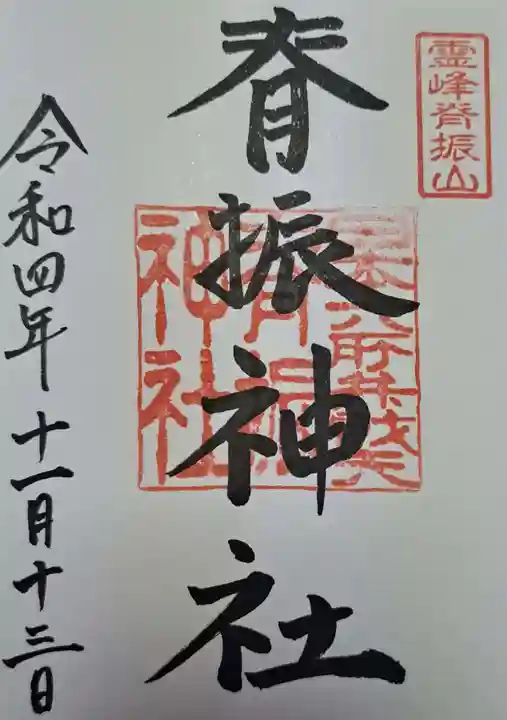 霊峰脊振山
脊振神社
令和四年十一月十三日
脊振
神社